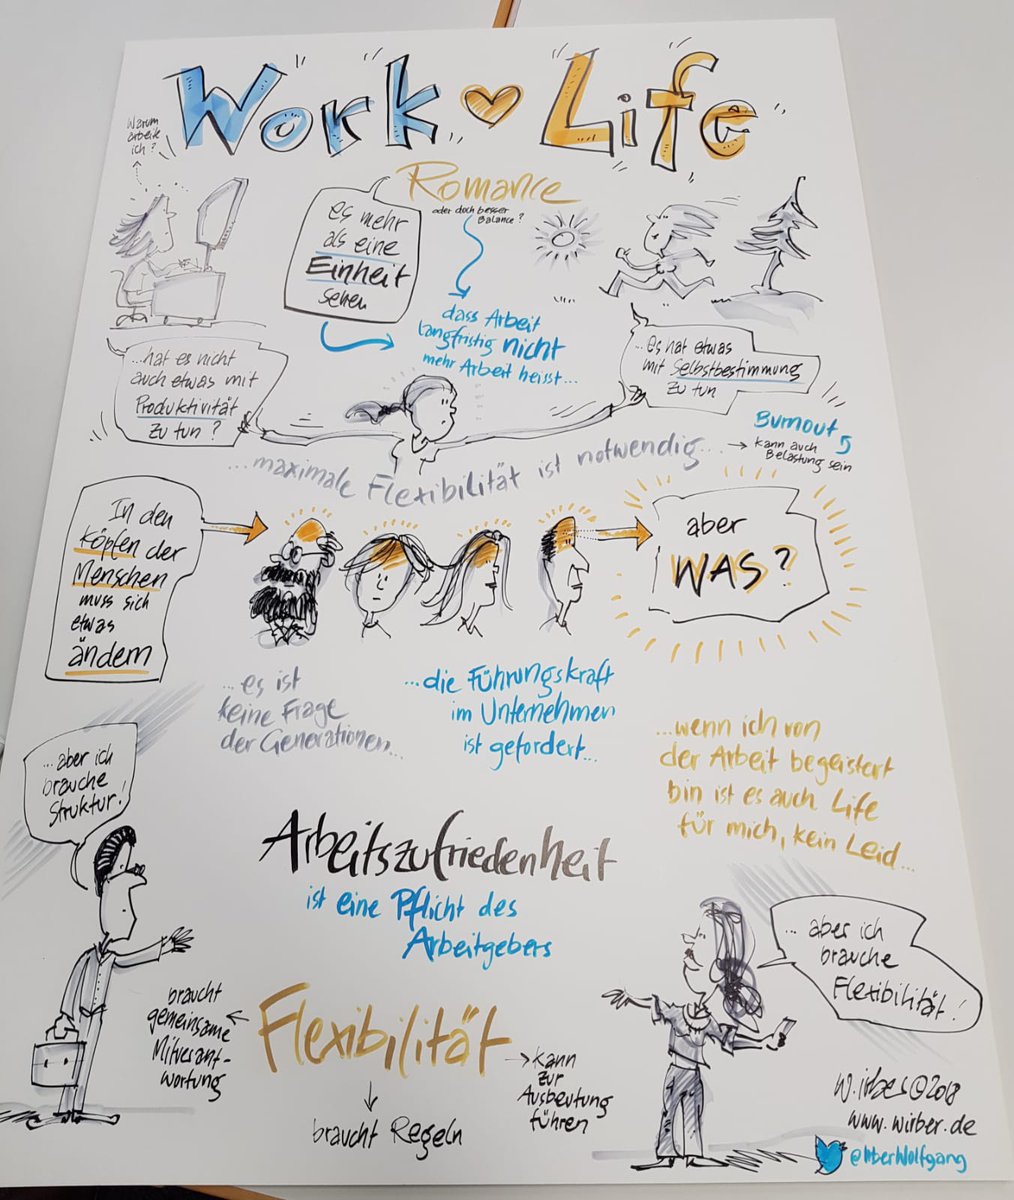 Work Life
Warum
arbeite
ich?
Romance
oder doch besser
Balance?
es mehr
als eine
Einheit
sehen
dass Arbeit
langfristig nicht
mehr Arbeit heisst...
...hat es nicht
auch etwas mit
Produktivität
zu tun?
...es hat etwas
mit Selbstbestimmung
zu tun
Burnout
kann auch
Belastung sein
...maximale Flexibilität ist notwendig...
In den
Köpfen der
Menschen
muss sich
etwas
ändern
aber
WAS?
...es ist
keine Frage
der Generationen...
...die Führungskraft
im Unternehmen
ist gefordert...
...wenn ich von
der Arbeit begeistert
bin ist es auch Life
für mich, kein Leid...
...aber ich
brauche
Struktur!
Arbeitszufriedenheit
ist eine Pflicht des
Arbeitgebers
...aber ich
brauche
Flexibilität!
Flexibilität
braucht
gemeinsame
Mitverant-
wortung
braucht Regeln
kann
zur
Ausbeutung
führen
W.irber©2018
www.wirber.de
@IrberWolfgang